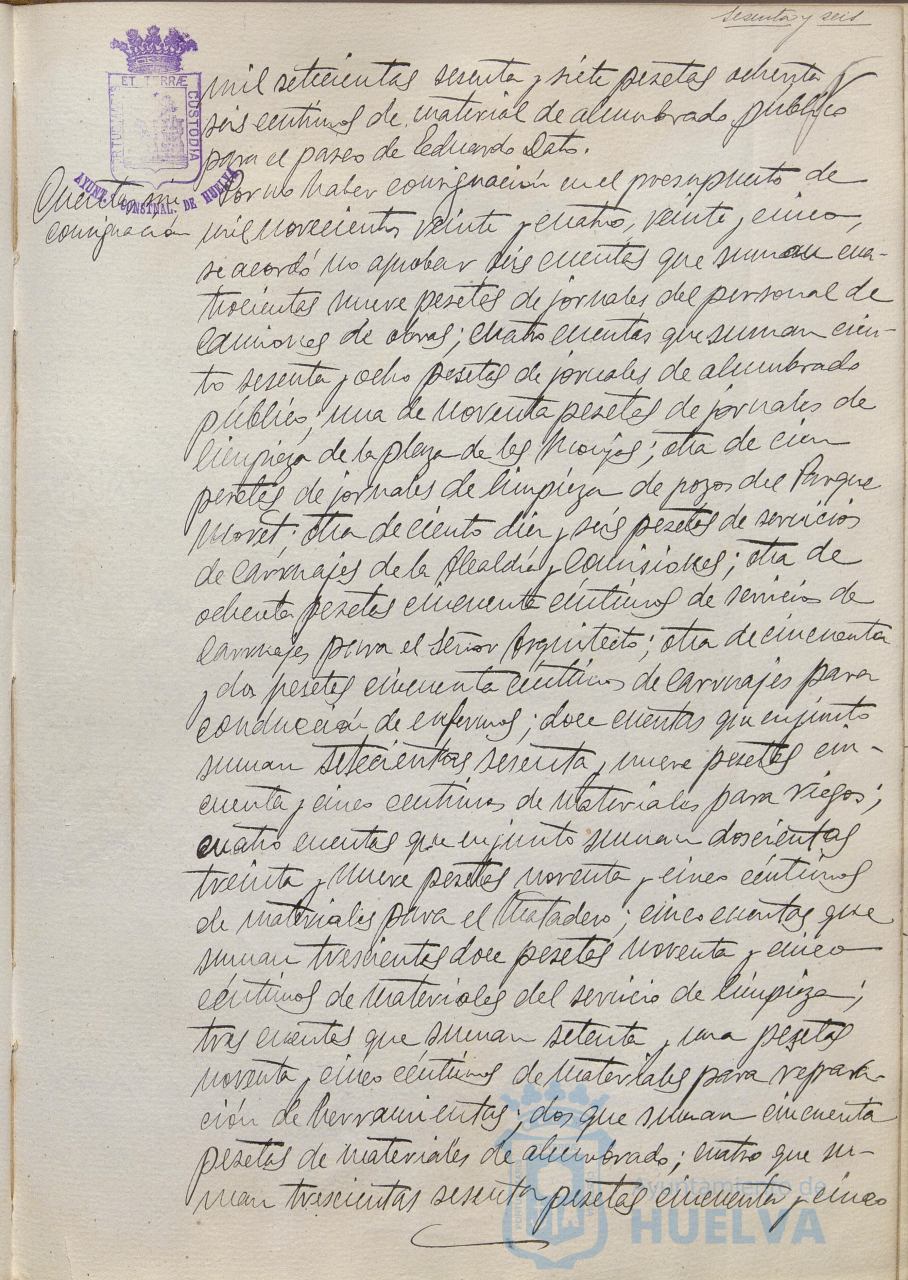 sesenta y seis
ET TERRÆ
CUSTODIA
AYUNT. CONSTNAL. DE HUELVA
mil setecientas sesenta y siete pesetas ochenta y
seis céntimos de material de alumbrado público
para el paseo de Eduardo Dato.
Cuentas sin
consignación
Por no haber consignación en el presupuesto de
mil novecientos veinte y cuatro, veinte y cinco,
se acordó no aprobar seis cuentas que suman cua-
trocientas nueve pesetas de jornales del personal de
camiones de obras; cuatro cuentas que suman cien-
to sesenta y ocho pesetas de jornales de alumbrado
público; una de noventa pesetas de jornales de
limpieza de la plaza de las Monjas; otra de cien
pesetas de jornales de limpieza de pozos del Parque
Moret; otra de ciento diez y seis pesetas de servicios
de carruajes de la Alcaldía y Comisiones; otra de
ochenta pesetas cincuenta céntimos de servicios de
carruajes para el señor Arquitecto; otra de cincuenta
y dos pesetas cincuenta céntimos de carruajes para
conducción de enfermos; doce cuentas que en junto
suman setecientas sesenta y nueve pesetas cin-
cuenta y cinco céntimos de materiales para riegos;
cuatro cuentas que en junto suman doscientas
treinta y nueve pesetas noventa y cinco céntimos
de materiales para el Matadero; cinco cuentas que
suman trescientas doce pesetas noventa y cinco
céntimos de materiales del servicio de limpieza;
tres cuentas que suman setenta y una pesetas
noventa y cinco céntimos de materiales para repara-
ción de herramientas; dos que suman cincuenta
pesetas de materiales de alumbrado; cuatro que su-
man trescientas sesenta pesetas cincuenta y cinco
Ayuntamiento de
HUELVA